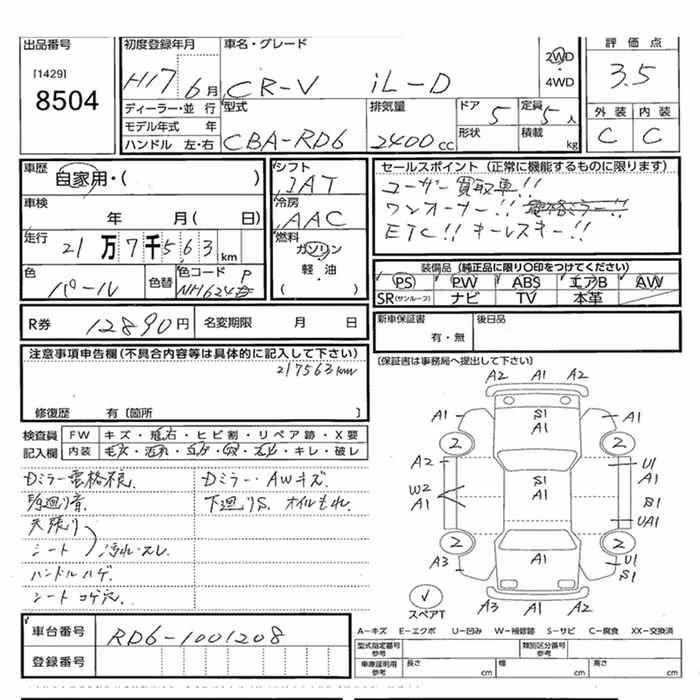 出品番号
[1429]
8504
初度登録年月
H17 6月
車名・グレード
CR-V iL-D
2WD
・
4WD
評価点
3.5
外装 内装
C C
ディーラー・並行
モデル年式 年
ハンドル 左・右
型式
CBA-RD6
排気量
2400cc
ドア 5
形状
定員 5人
積載 kg
車歴
自家用・( )
車検
年 月( 日)
走行
21万7千563km
色
パール
色替
色コード
NH624 P
シフト
IAT
冷房
AAC
燃料
ガソリン
軽・油
セールスポイント(正常に機能するものに限ります)
ユーザー買取車!!
ワンオーナー!! 電格ミラー!!
ETC!! キーレスキー!!
装備品(純正品に限り○印をつけてください)
PS PW ABS エアB AW
SR(サンルーフ) ナビ TV 本革
R券 12890円 名変期限 月 日
新車保証書
有・無
後日品
[保証書は事務局へ提出して下さい]
注意事項申告欄(不具合内容等は具体的に記入して下さい)
217563km
修復歴 有[箇所 ]
検査員
記入欄
FW キズ・飛石・ヒビ割・リペア跡・X要
内装 ・キレ・破レ
Dミラー電格不良
Dミラー・AWキズ
下廻りS. オイルもれ
天張り
シート 汚れ・スレ
ハンドルハゲ
シートコゲ穴
車台番号 RD6-1001208
登録番号
A2 A1 A2
A1 S1 A1 A1
2 2
A2 S1 A1 U1
A1
W2 A1 S1
UA1
2 2
A3 A1 U1
S1
A3 A1 A2
スペアT
A-キズ E-エクボ U-凹み W-補修跡 S-サビ C-腐食 XX-交換済
型式指定番号
参考
類別区分番号
参考
車庫証明用
参考
長さ cm 幅 cm 高さ cm